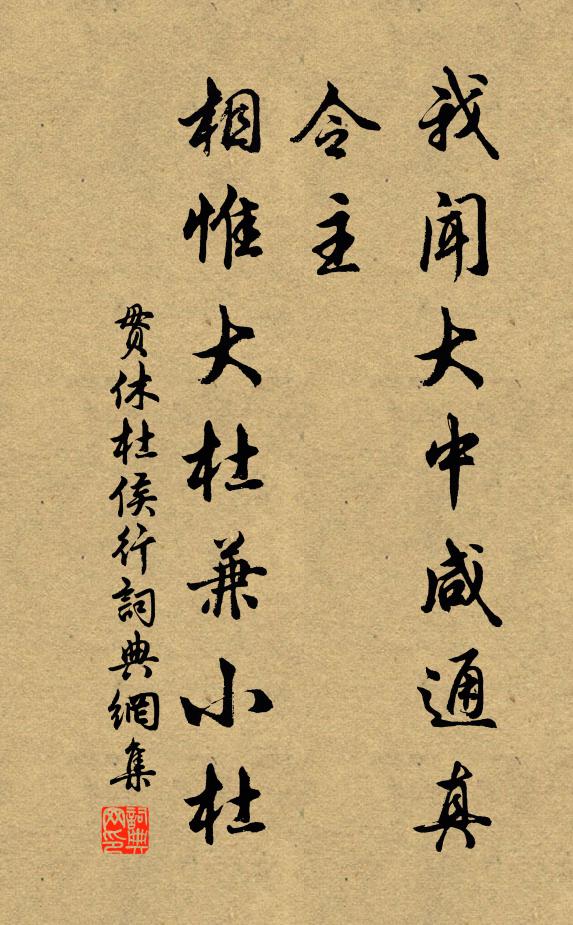 我聞大中咸通真
令主
相惟大杜兼小杜
貫休杜侯行詞典網集
詞典網印